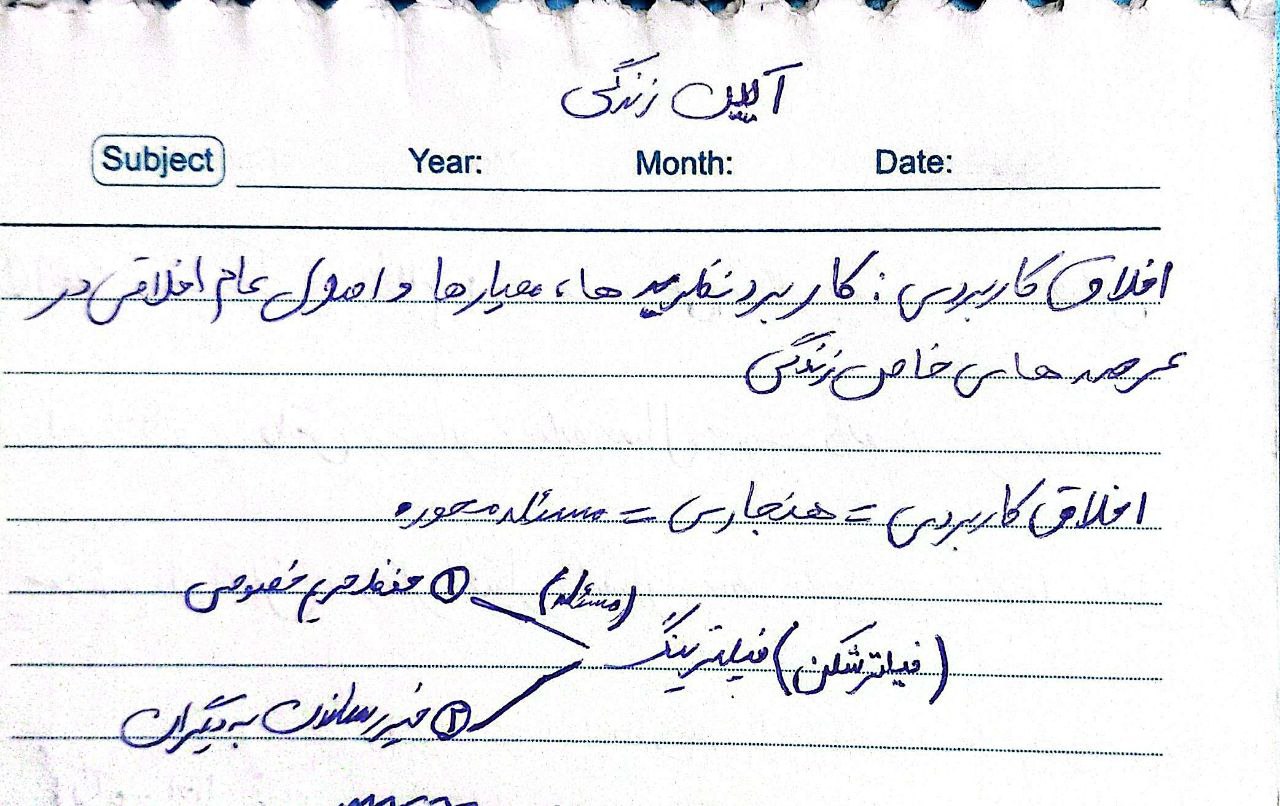 آیین زندگی
Subject Year: Month: Date:
اخلاق کاربردی : کاربرد نظریه ها، معیارها و اصول عام اخلاقی در
عرصه های خاص زندگی
اخلاق کاربردی = هنجاری = مسئله محوره
(مسئله) ① حفظ حریم خصوصی
(فیلترشکن) فیلترینگ
② خیر رساندن به دیگران